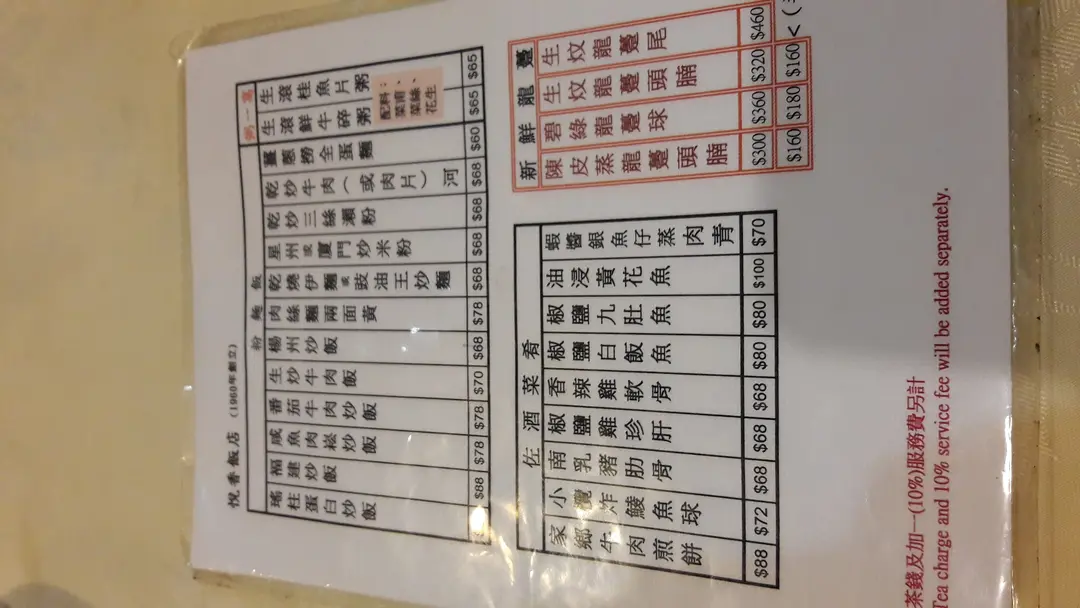 悅香飯店 (1960年創立)
粉 麵 飯
粥一窩
生滾桂魚片粥 $65
生滾鮮牛碎粥 $65
配料：
菜甫、
菜絲、
花生
薑蔥撈全蛋麵 $60
乾炒牛肉（或肉片）河 $68
乾炒三絲瀨粉 $68
星州或廈門炒米粉 $68
乾燒伊麵或豉油王炒麵 $68
肉絲麵兩面黃 $78
楊州炒飯 $68
生炒牛肉飯 $70
番茄牛肉炒飯 $78
咸魚肉崧炒飯 $78
福建炒飯 $88
瑤柱蛋白炒飯
新鮮龍躉
生炆龍躉尾 $460
生炆龍躉頭腩 $320 $160
碧綠龍躉球 $360 $180
陳皮蒸龍躉頭腩 $300 $160
佐酒菜肴
蝦醬銀魚仔蒸肉青 $70
油浸黃花魚 $100
椒鹽九肚魚 $80
椒鹽白飯魚 $80
香辣雞軟骨 $68
椒鹽雞珍肝 $68
南乳豬肋骨 $68
小欖炸鯪魚球 $72
家鄉牛肉煎餅 $88
茶錢及加一(10%)服務費另計
Tea charge and 10% service fee will be added separately.